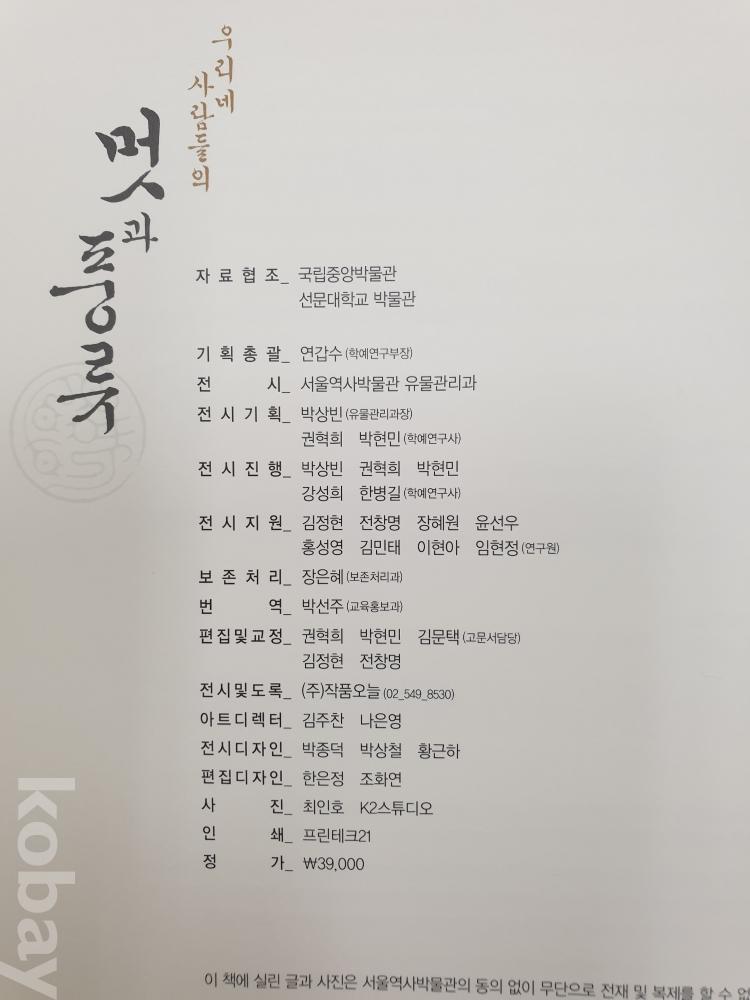 우리네
사람들의
멋과
풍류
자료협조_ 국립중앙박물관
선문대학교 박물관
기획총괄_ 연갑수(학예연구부장)
전 시_ 서울역사박물관 유물관리과
전시기획_ 박상빈(유물관리과장)
권혁희 박현민(학예연구사)
전시진행_ 박상빈 권혁희 박현민
강성희 한병길(학예연구사)
전시지원_ 김정현 전창명 장혜원 윤선우
홍성영 김민태 이현아 임현정(연구원)
보존처리_ 장은혜(보존처리과)
번 역_ 박선주(교육홍보과)
편집및교정_ 권혁희 박현민 김문택(고문서담당)
김정현 전창명
전시및도록_ (주)작품오늘(02_549_8530)
아트디렉터_ 김주찬 나은영
전시디자인_ 박종덕 박상철 황근하
편집디자인_ 한은정 조화연
사 진_ 최인호 K2스튜디오
인 쇄_ 프린테크21
정 가_ ₩39,000
이 책에 실린 글과 사진은 서울역사박물관의 동의 없이 무단으로 전재 및 복제를 할 수 없
kobay